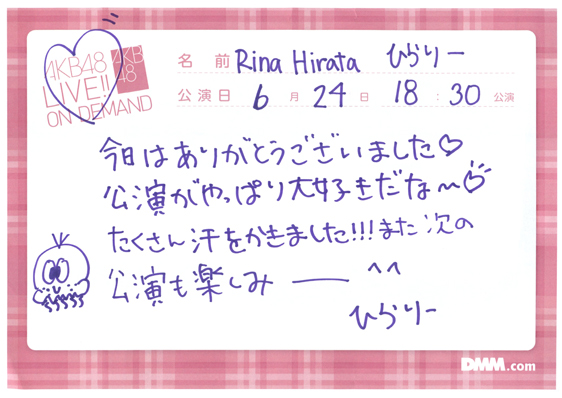 AKB48
LIVE!!
ON DEMAND
AKB
48
名 前 Rina Hirata ひらりー
公演日 6 月 24 日 18 : 30 公演
今日はありがとうございました♡
公演がやっぱり大好きだな〜♡
たくさん汗をかきました!!!また次の
公演も楽しみ —— ^^
ひらりー
DMM.com